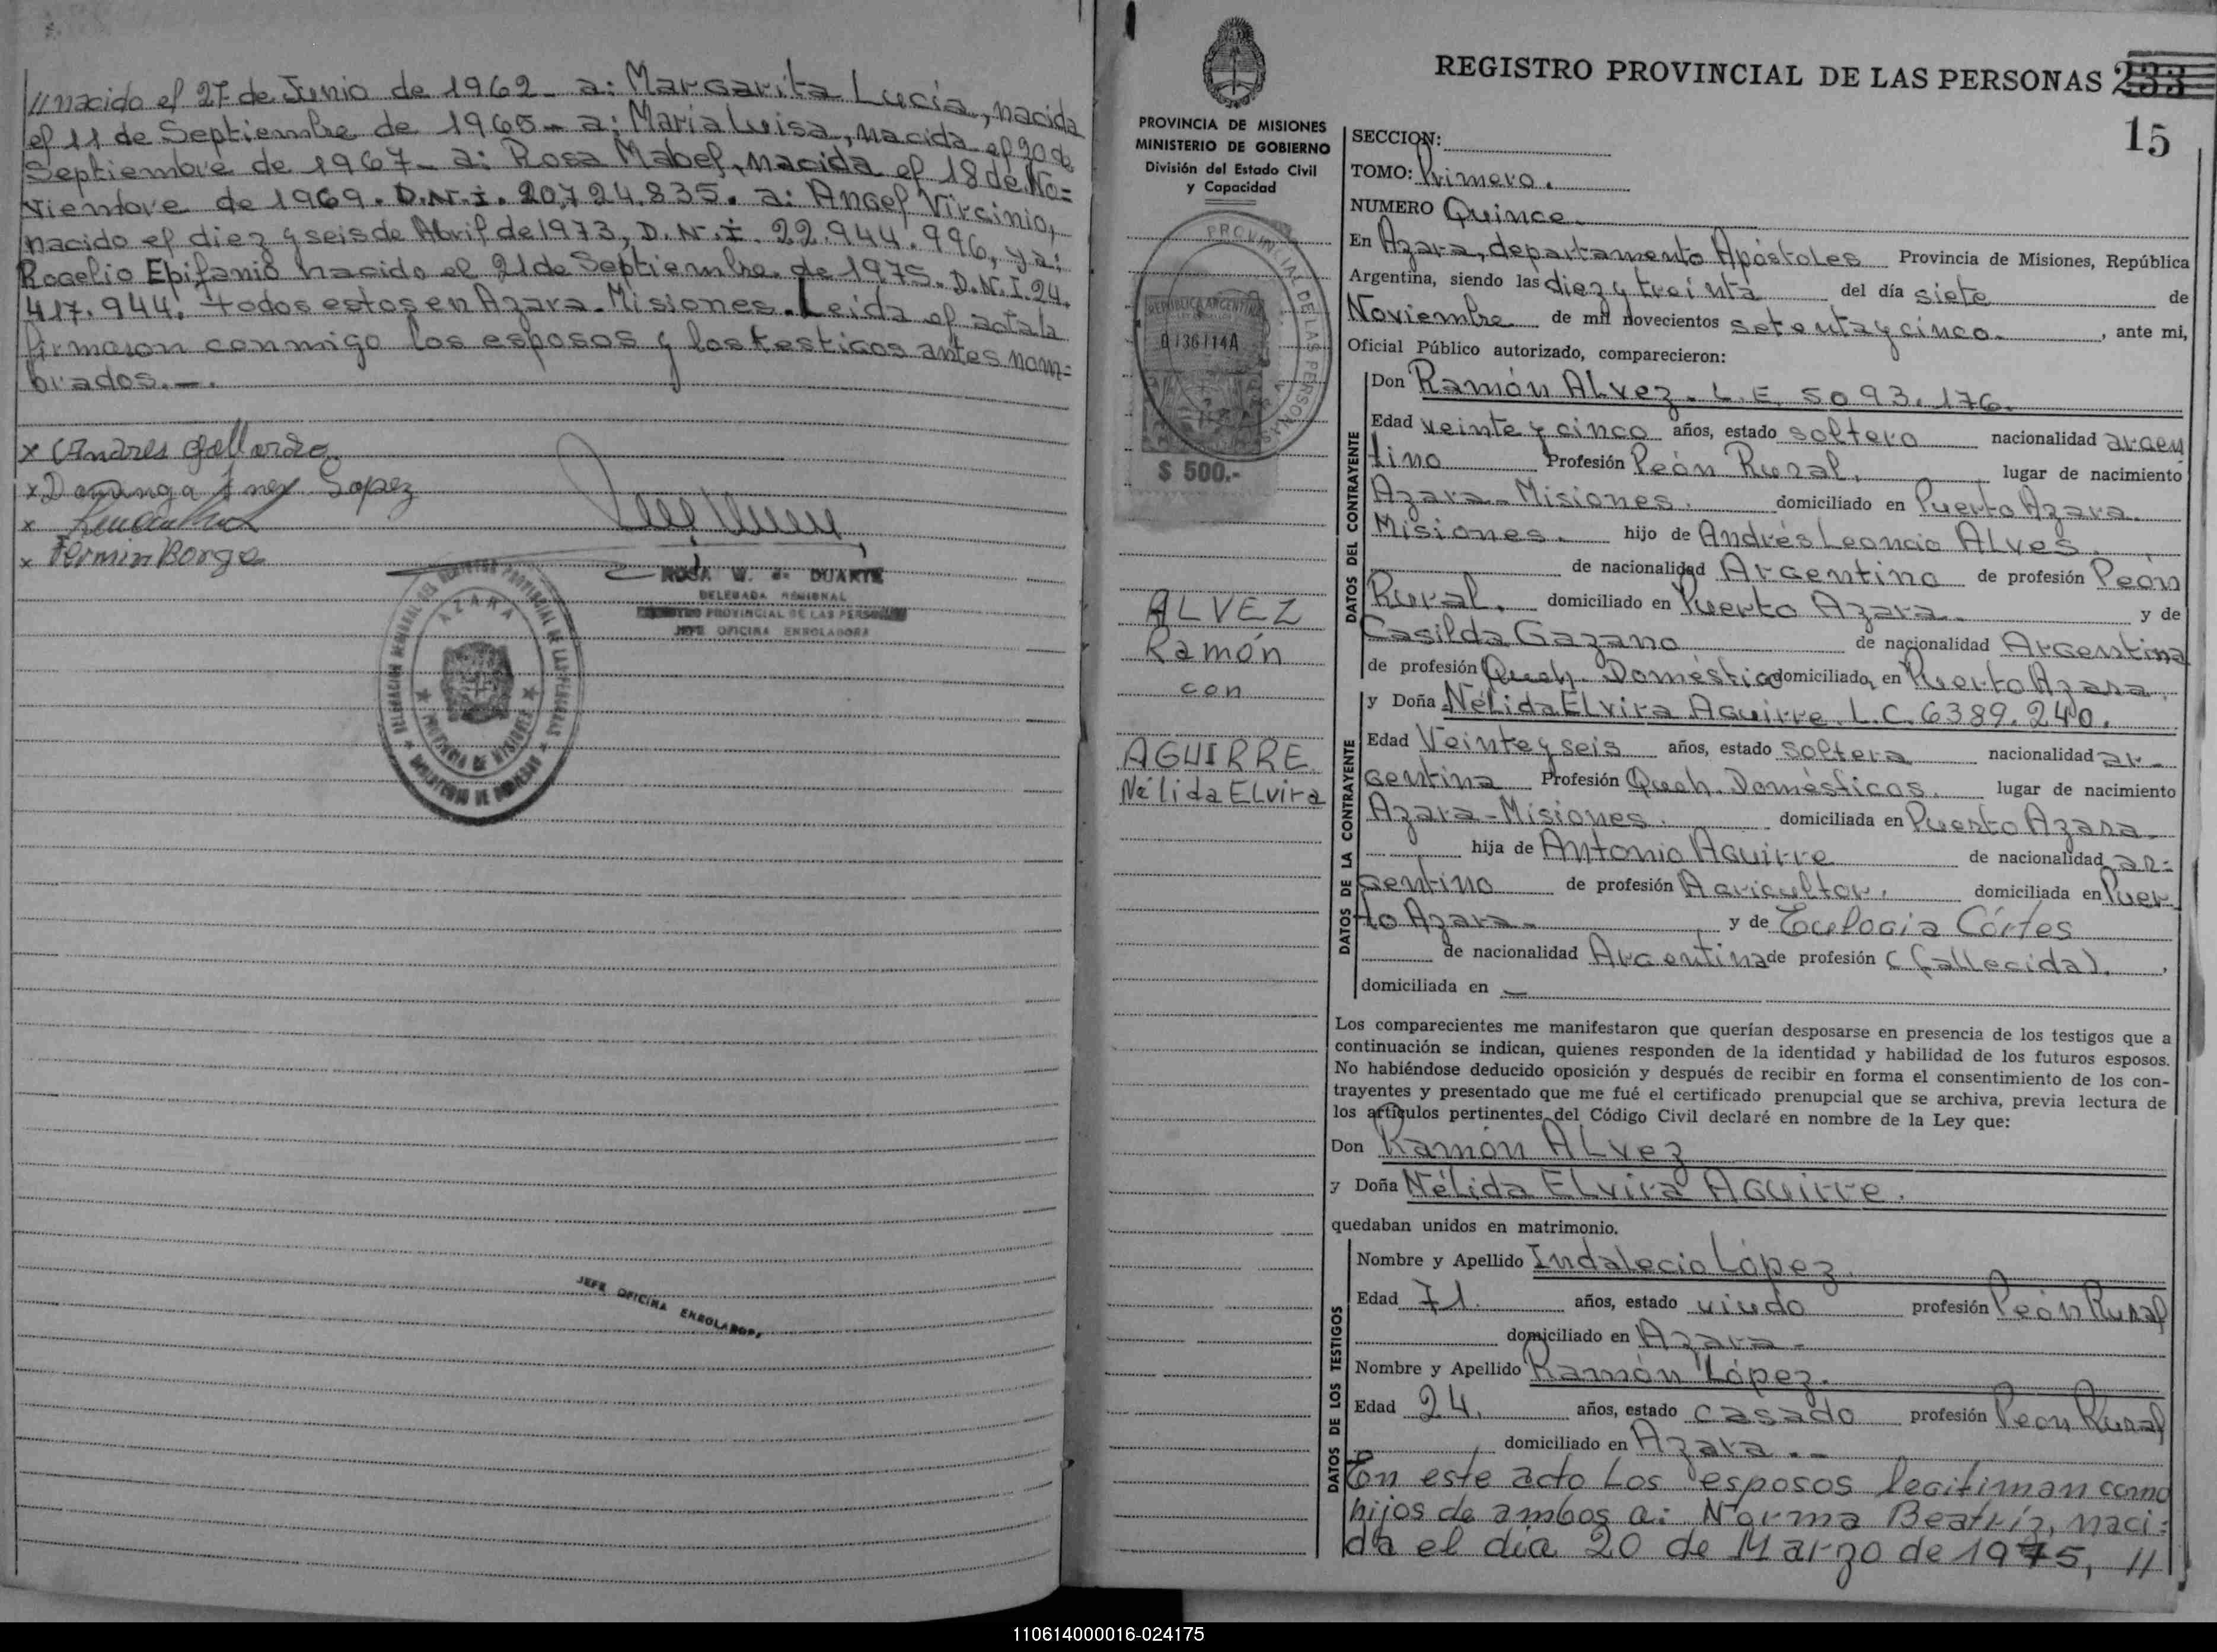 //nacido el 27 de Junio de 1962 - a: Margarita Lucía, nacida
el 11 de Septiembre de 1965 - a: María Luisa, nacida el 20 de
Septiembre de 1967 - a: Rosa Mabel, nacida el 18 de No=
viembre de 1969. D.N.I. 20.724.835. a: Angel Virginio,
nacido el diez y seis de Abril de 1973, D.N.I. 22.944.996, y a:
Rogelio Epifanio nacido el 21 de Septiembre de 1975. D.N.I. 24.
417.944. todos estos en Azara - Misiones. Leída el acta la
firmaron conmigo los esposos y los testigos antes nom=
brados. - .
x Andres Gallardo
x Dominga Ines Lopez
x
x Fermin Borge
ROSA W. de DUARTE
DELEGADA REGIONAL
REGISTRO PROVINCIAL DE LAS PERSONAS
JEFE OFICINA ENROLADORA
DELEGACION REGIONAL DEL REGISTRO PROVINCIAL DE LAS PERSONAS
AZARA
PROVINCIA DE MISIONES
MINISTERIO DE GOBIERNO
JEFE OFICINA ENROLADORA
REGISTRO PROVINCIAL DE LAS PERSONAS 233
15
PROVINCIA DE MISIONES
MINISTERIO DE GOBIERNO
División del Estado Civil
y Capacidad
REPUBLICA ARGENTINA
0136114A
$ 500.-
ALVEZ
Ramón
con
AGUIRRE
Nélida Elvira
SECCION:
TOMO: Primero.
NUMERO Quince
En Azara, departamento Apóstoles Provincia de Misiones, República
Argentina, siendo las diez y treinta del día siete de
Noviembre de mil novecientos setenta y cinco. , ante mi,
Oficial Público autorizado, comparecieron:
DATOS DEL CONTRAYENTE
Don Ramón Alvez. L.E. 5093.176.
Edad veinte y cinco años, estado soltero nacionalidad argen
tino Profesión Peón Rural. lugar de nacimiento
Azara - Misiones. domiciliado en Puerto Azara.
Misiones. hijo de Andrés Leoncio Alves.
de nacionalidad Argentino de profesión Peón
Rural. domiciliado en Puerto Azara. y de
Casilda Gazano de nacionalidad Argentina
de profesión Queh. Doméstic domiciliado, en Puerto Azara.
DATOS DE LA CONTRAYENTE
y Doña Nélida Elvira Aguirre. L.C. 6389.240.
Edad Veinte y seis años, estado soltera nacionalidad ar-
gentina Profesión Queh. Domésticos. lugar de nacimiento
Azara - Misiones. domiciliada en Puerto Azara.
hija de Antonio Aguirre de nacionalidad ar=
gentino de profesión Agricultor. domiciliada en Puer
to Azara. y de Eulogia Córtes
de nacionalidad Argentina de profesión (fallecida).
domiciliada en —
Los comparecientes me manifestaron que querían desposarse en presencia de los testigos que a
continuación se indican, quienes responden de la identidad y habilidad de los futuros esposos.
No habiéndose deducido oposición y después de recibir en forma el consentimiento de los con-
trayentes y presentado que me fué el certificado prenupcial que se archiva, previa lectura de
los artículos pertinentes del Código Civil declaré en nombre de la Ley que:
Don Ramón Alvez
y Doña Nélida Elvira Aguirre.
quedaban unidos en matrimonio.
DATOS DE LOS TESTIGOS
Nombre y Apellido Indalecio López
Edad 71. años, estado viudo profesión Peón Rural
domiciliado en Azara -
Nombre y Apellido Ramón López.
Edad 24. años, estado casado profesión Peon Rural
domiciliado en Azara. -
En este acto los esposos legitiman como
hijos de ambos a: Norma Beatríz, naci=
da el día 20 de Marzo de 1975, //
110614000016-024175